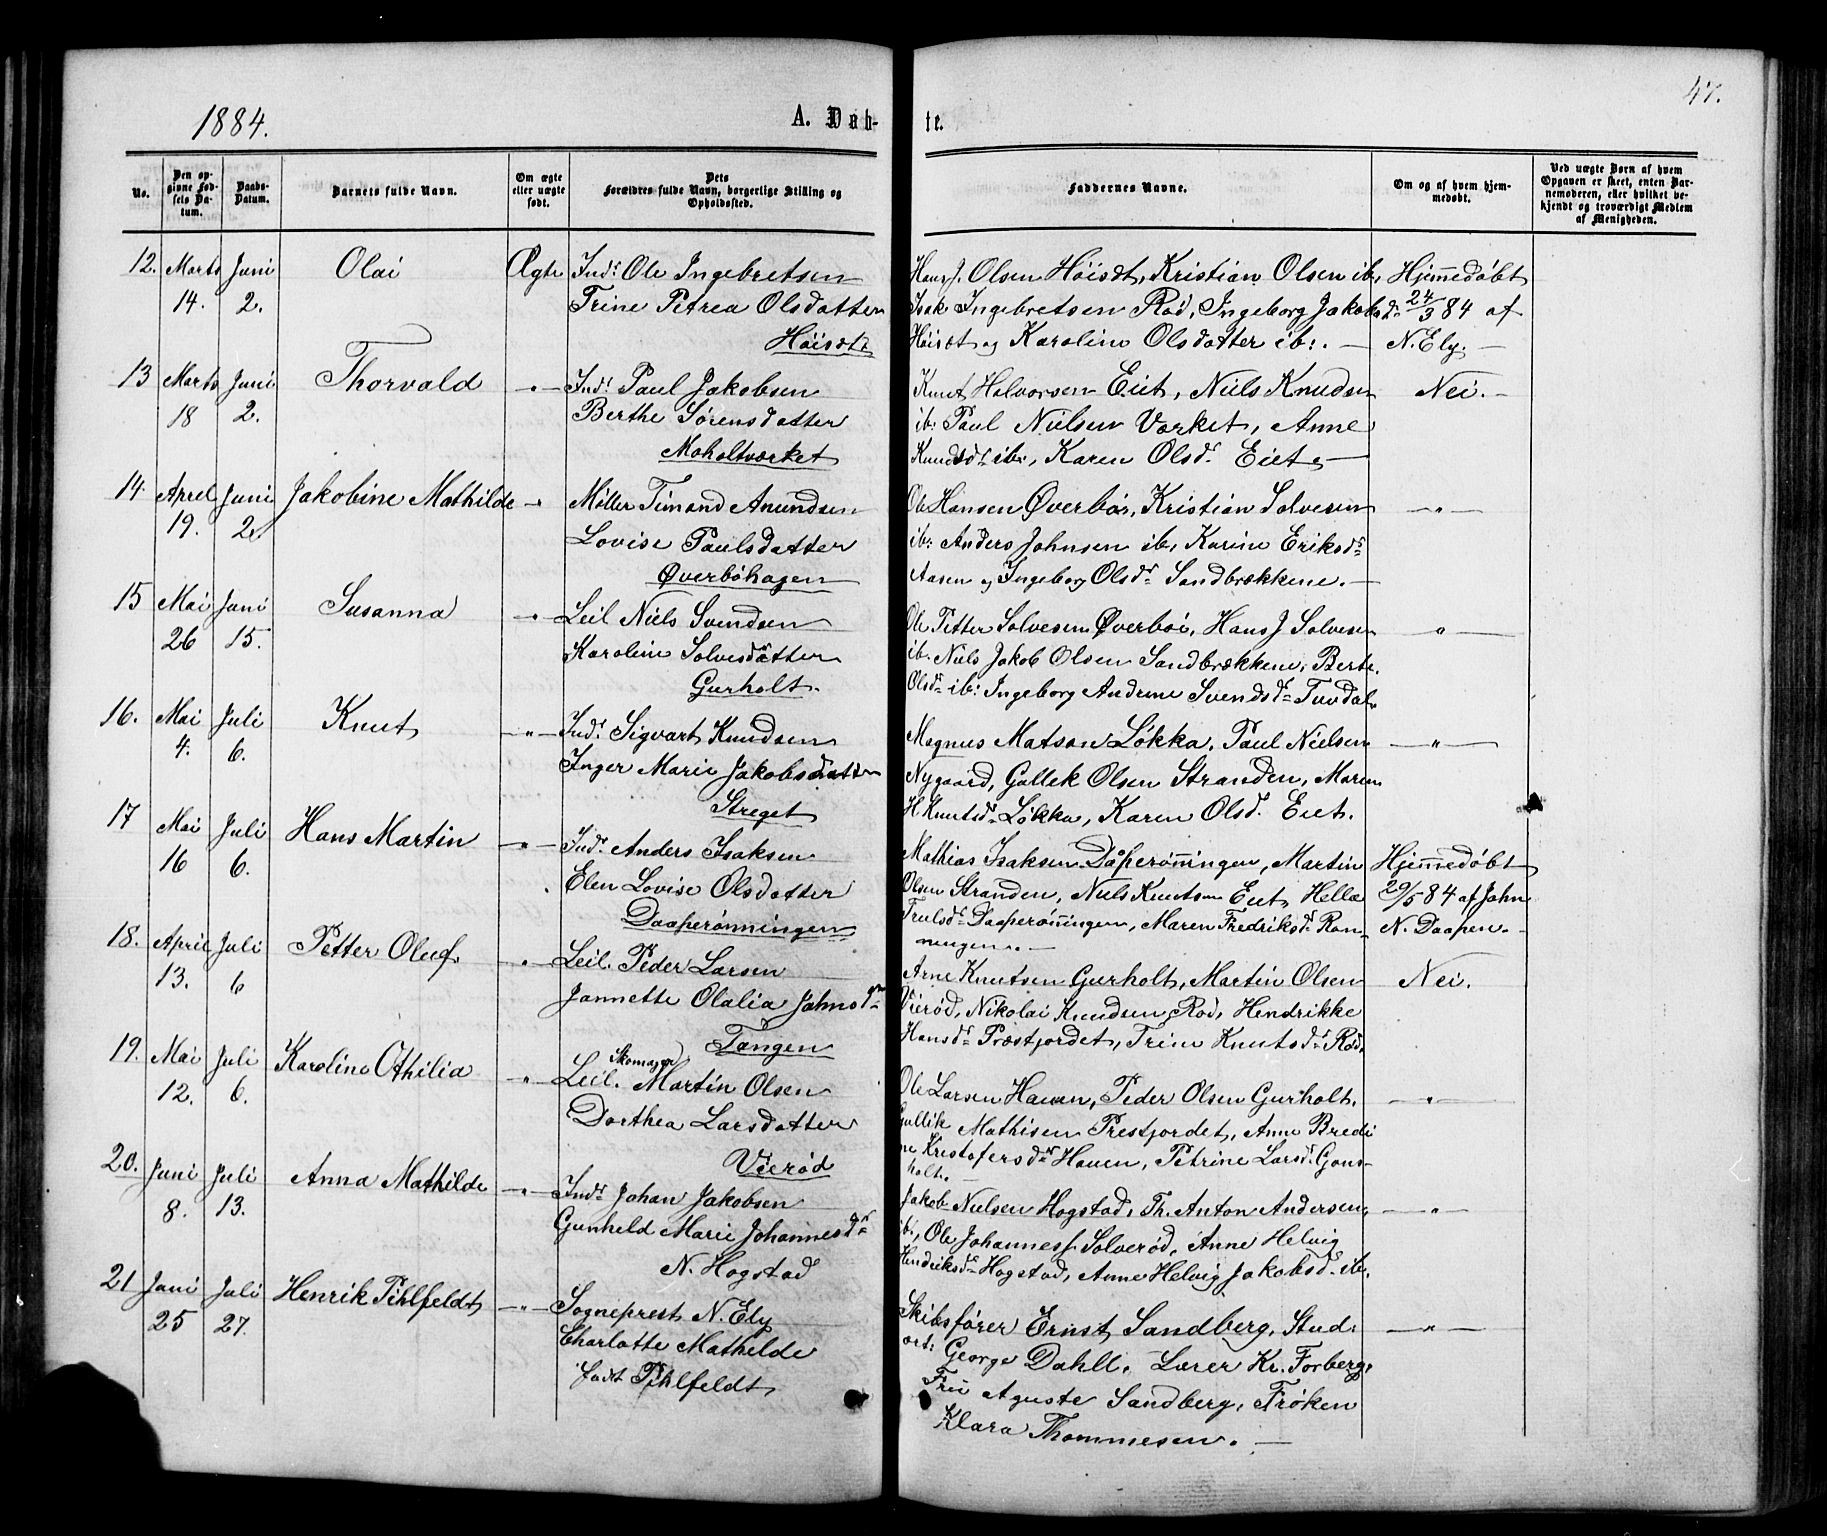 1884.
A. Døb-
te.
47.
No.
Den op-
givne Fød-
sels Da-
tum.
Daabs-
Datum.
Barnets fulde Navn.
Om ægte
eller uægte
født.
Dets
Forældres fulde Navn, borgerlige Stilling og
Opholdssted.
Faddernes Navne.
Om og af hvem hjem-
medøbt.
Ved uægte Børn af hvem
Opgaven er skeet, enten Bar-
nemoderen, eller hvilket be-
kjendt og troværdigt Medlem
af Menigheden.
12. Marts Juni Olai Ægte Inds Ole Ingebretsen
14. 2. Trine Petrea Olsdatter
Höisæt
Hans J. Olsen Höisæt, Kristian Olsen ib. Hjemmedöbt
Isak Ingebretsen Röd, Ingeborg Jakobsd 24/3 84 af
Höisæt og Karoline Olsdatter ib:. — N. Ely. —
13 Marts Juni Thorvald — " — Inds Paul Jakobsen
18 2. Berthe Sörensdatter
Moholtværket
Knut Halvorsen Eiet, Niels Knudsen Nei. —
ib: Paul Nielsen Værket, Anne
Knudsdr ib:, Karen Olsd. Eiet. —
14. Aprel Juni Jakobine Mathilde — " Möller Timand Amundsen
19. 2. Lovise Paulsdatter
Øverböhagen
Ole Hansen Øverböe, Kristian Solvesen — " —
ib: Anders Johnsen ib, Karine Eriksdr
Aasen og Ingeborg Olsdr Sandbrækkene. —
15 Mai Juni Susanna — " — Leil Niels Svendsen
26 15. Karoline Solvesdatter
Gurholt.
Ole Petter Solvesen Øverböe, Hans J. Solvesen — " —
ib. Niels Jakob Olsen Sandbrækkene, Berte
Olsdr ib: Ingeborg Andrine Svendsdr Tuvdal.
16. Mai Juli Knut — " — Inds Sigvart Knudsen
4. 6. Inger Marie Jakobsdatter
Streget
Magnus Matson Lökka, Paul Nielsen — " —
Nygaard, Gullek Olsen Stranden, Maren
H. Knutsdr Lökka, Karen Olsd. Eiet.
17 Mai Juli Hans Martin — " — Inds Anders Isaksen
16 6. Elen Lovise Olsdatter
Daaperönningen
Mathias Isaksen Daaperönningen, Martin Hjemmedöbt
Olsen Stranden, Niels Knutsen Eiet, Hellæ 29/5 84 af John
Trulsdr Daaperönningen, Maren Fredriksdr Rön- N. Daapen. —
ningen. —
18. April Juli Petter Oluf. — " — Leil. Peder Larsen
13. 6 Jannette Olalia Johnsdr
Tangen
Arne Knutsen Gurholt, Martin Olsen Nei.
Vieröd, Nikolai Knudsen Röd, Hendrikke
Hansdr Præstjordet, Trine Knutsdr Röd.
19. Mai Juli Karoline Othilia — " — Leil. Skomager Martin Olsen
12. 6. Dorthea Larsdatter
Vieröd
Ole Larsen Hauen, Peder Olsen Gurholt. — " —
Gullik Mathisen Prestjordet, Anne Bredi
ne Kristofersdr Hauen, Petrine Larsd. Gons-
holt. —
20. Juni Juli Anna Mathilde — " — Inds Johan Jakobsen
8. 13. Gunheld Marie Johannesdr
N. Hogstad
Jakob Nielsen Hogstad, Th. Anton Andersen, — " —
ib., Ole Johannesf. Solveröd, Anne Helvig
Hendriksdr Hogstad, Anne Helvig Jakobsd. ib.
21 Juni Juli Henrik Pihlfeldt — " — Sogneprest N. Ely
25 27. Charlotte Mathilde
födt Pihlfeldt
Skibsförer Ernst Sandberg, Stud: — " —
art: George Dahll, Lærer Kr. Forberg,
Fru Aguste Sandberg, Fröken
Klara Thommesen. —